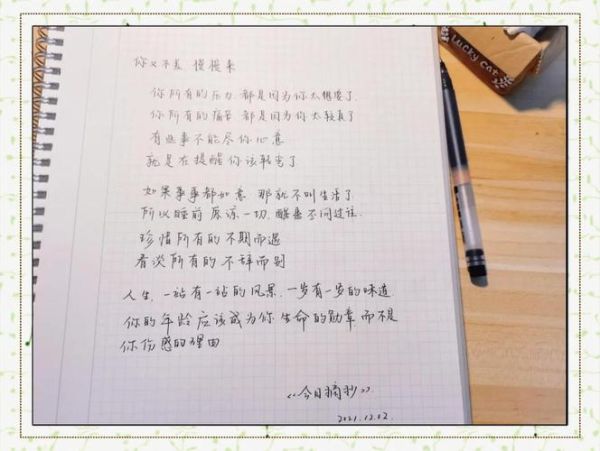 你又不差 慢慢来
你所有的压力 都是因为你太想要了.
你所有的痛苦 都是因为你太较真了
有些事不能尽你心意
就是在提醒你该转弯了
如果事事都如意 那就不叫生活了
所以睡前原谅一切.醒来不问过往.
珍惜所有的不期而遇
看淡所有的不辞而别
人生,一站有一站的风景,一岁有一岁的味道
你的年龄应该成为你生命的勋章而不是
你伤感的理由
<<今日摘抄>>
2021.12.02.
Lucky cat